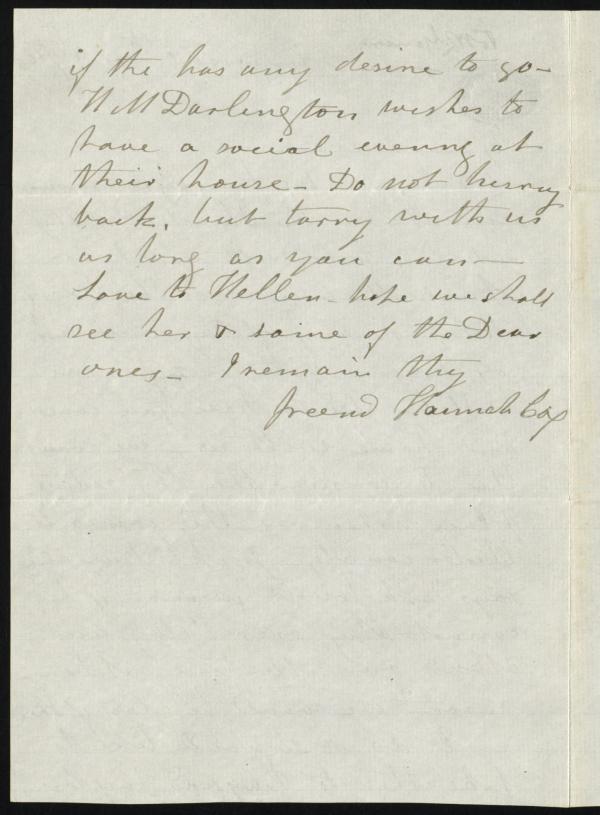 if the has any desire to go-
W M Darlington wishes to
have a social evening at
their house- Do not hurray
back, but tarry with us
as long as you can-
Love to Hellen- hope we shall
see her & some of the Dear
ones- I remain thy
freend Hannah Cox